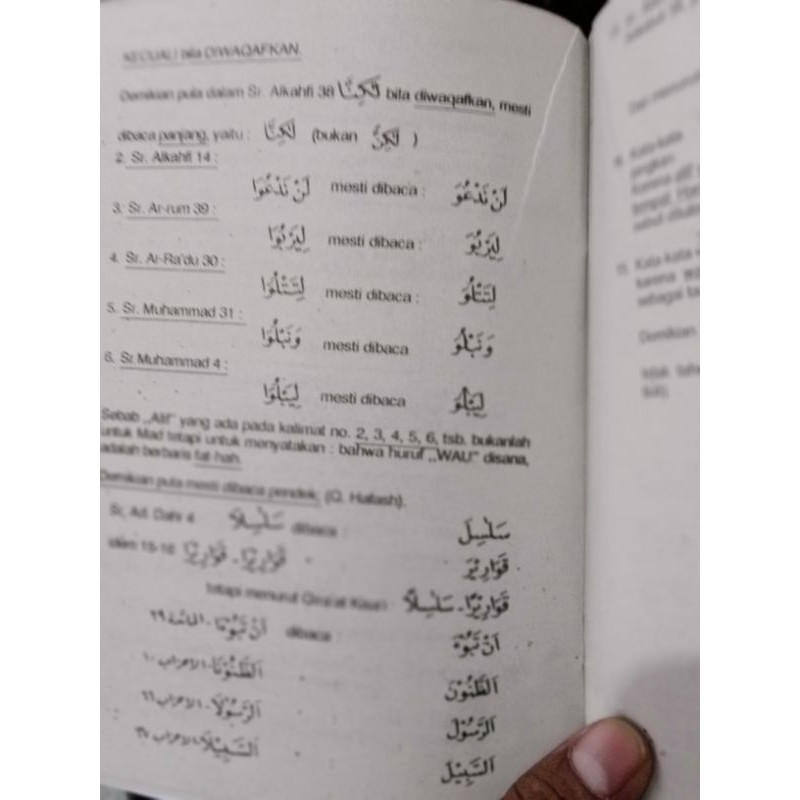 KECUALI bila DIWAQAFKAN.
Demikian pula dalam Sr. Alkahfi 38 لٰكِنَّا bila diwaqafkan, mesti
dibaca panjang, yaitu : لٰكِنَّا (bukan لٰكِنَّ )
2. Sr. Alkahfi 14 :
لَنْ نَدْعُوَا mesti dibaca : لَنْ نَدْعُوَ
3. Sr. Ar-rum 39 :
لِيَرْبُوَا mesti dibaca : لِيَرْبُوَ
4. Sr. Ar-Ra'du 30 :
لِتَتْلُوَا mesti dibaca : لِتَتْلُوَ
5. Sr. Muhammad 31 :
وَنَبْلُوَا mesti dibaca وَنَبْلُوَ
6. Sr. Muhammad 4 :
لِيَبْلُوَا mesti dibaca لِيَبْلُوَ
Sebab „Alif" yang ada pada kalimat no. 2, 3, 4, 5, 6, tsb. bukanlah
untuk Mad tetapi untuk menyatakan : bahwa huruf „WAU" disana,
adalah berbaris fat-hah.
Demikian pula mesti dibaca pendek; (Q. Hafash).
Sr, Ad. Dahr 4 سَلٰسِلَا۟ dibaca : سَلٰسِلَ
idem 15-16 قَوَارِيْرَا۟ - قَوَارِيْرَا۟ " قَوَارِيْرَ
tetapi menurut Qira'at : سَلٰسِلًا - قَوَارِيْرًا
اَنْ تَبُوْءَا - المائدة ٢٩ dibaca : اَنْ تَبُوْءَ
اَلظُّنُوْنَا - الاحزاب ١٠ " اَلظُّنُوْنَ
اَلرَّسُوْلَا - الاحزاب ٦٦ " اَلرَّسُوْلَ
اَلسَّبِيْلَا - الاحزاب " اَلسَّبِيْلَ
Kata-kata
karena
sebagai
Demikian
tidak